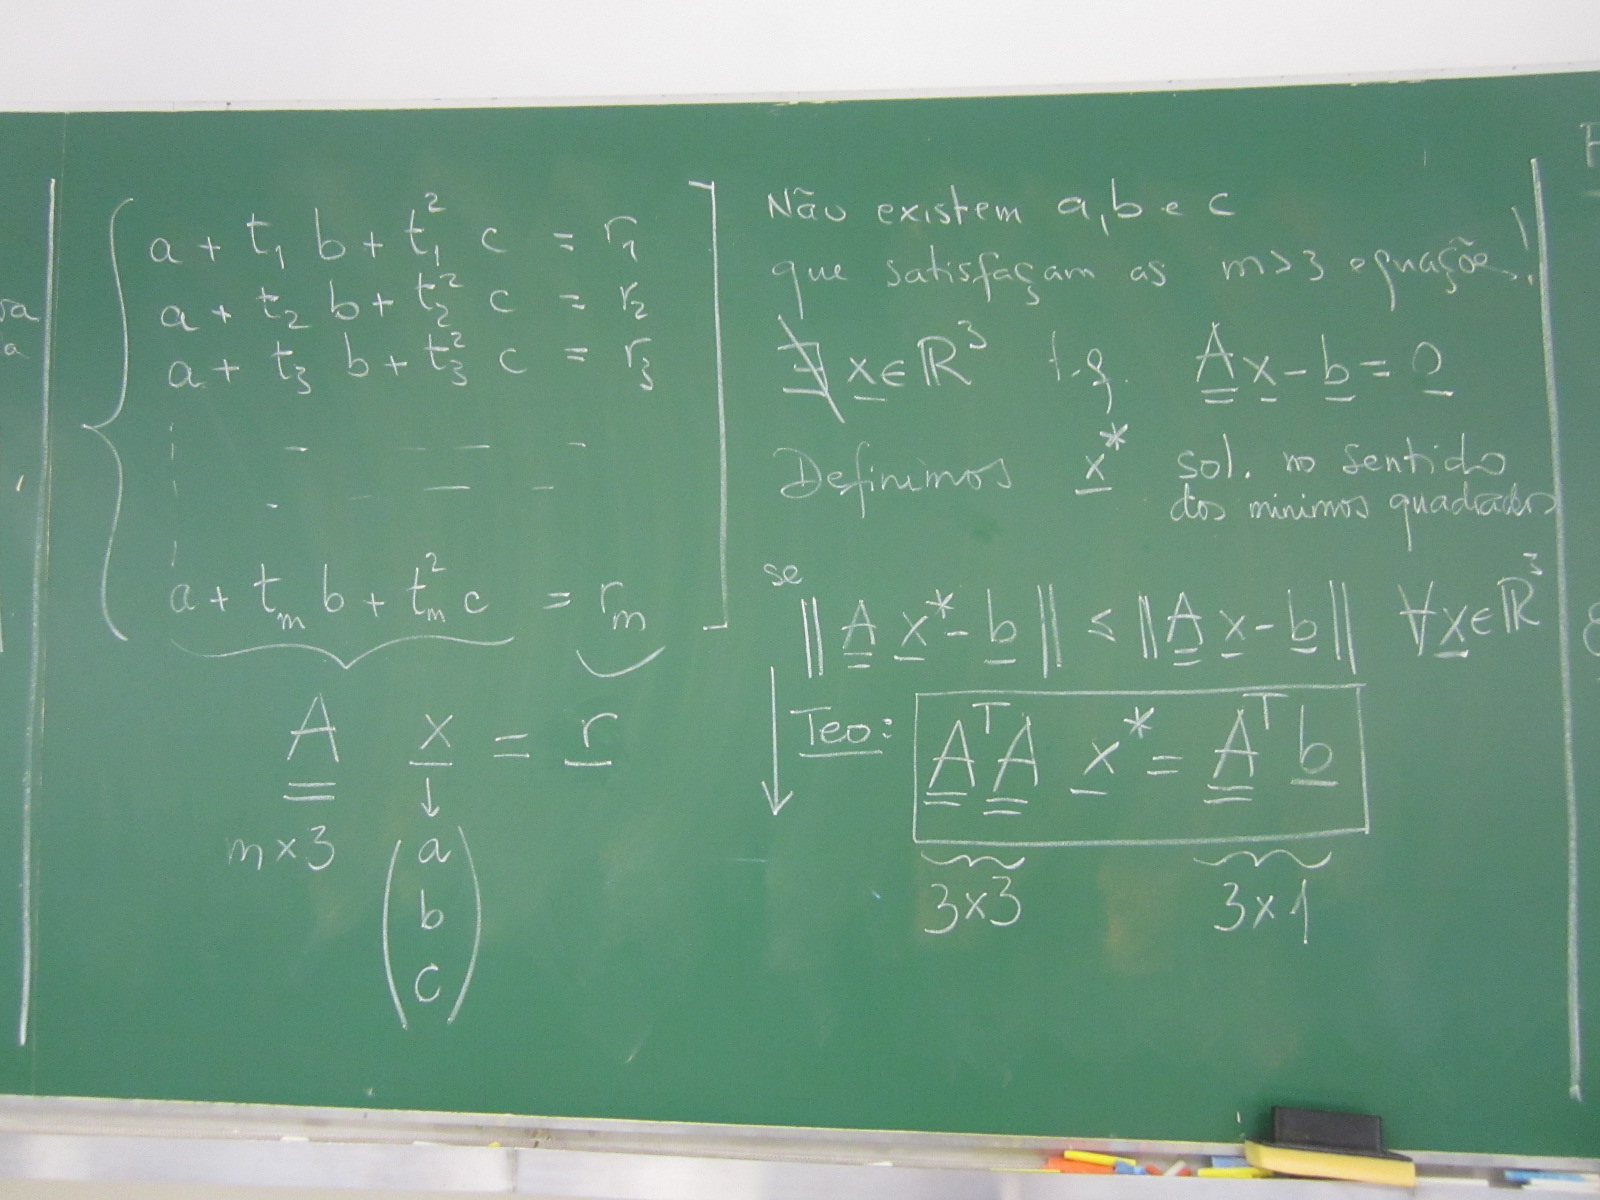 a + t₁ b + t₁² c = r₁
a + t₂ b + t₂² c = r₂
a + t₃ b + t₃² c = r₃
a + tₘ b + tₘ² c = rₘ
A x = r
m×3
a
b
c
Não existem a, b e c
que satisfaçam as m>3 equações!
∄ x ∈ ℝ³ t.q. A x - b = 0
Definimos x* sol. no sentido
dos minimos quadrados
se
‖A x* - b‖ ≤ ‖A x - b‖ ∀x∈ℝ³
Teo: AᵀA x* = Aᵀ b
3×3 3×1